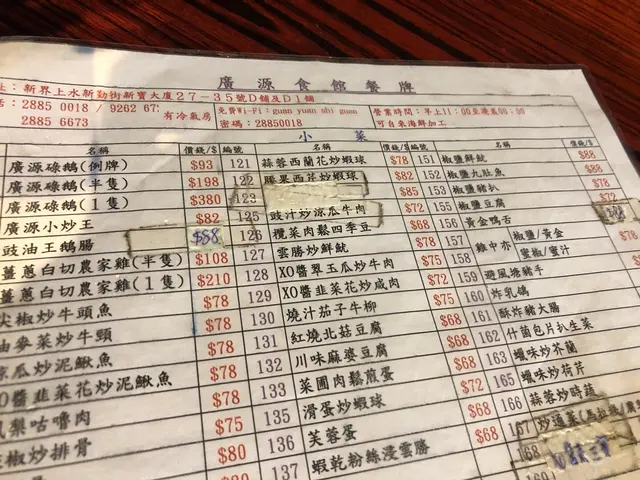 廣源食館餐牌
址：新界上水新勤街新寶大廈27-35號D舖及D1舖
2885 0018 / 9262 67
2885 6673
有冷氣房
免費Wi-Fi：guan yuan shi guan
密碼：28850018
營業時間：早上11
可自來海鮮加工
小 菜
名稱 價錢/$ 編號 名稱 價錢/$ 編號 名稱 價錢/$
廣源碌鵝(例牌) $93 121 蒜蓉西蘭花炒蝦球 $78 151 椒鹽鮮魷 $88
廣源碌鵝(半隻) $198 122 腰果西芹炒蝦球 $82 152 椒鹽九肚魚 $88
廣源碌鵝(1隻) $380 123 $85 153 椒鹽豬扒 $72
廣源小炒王 $82 125 豉汁炒涼瓜牛肉 155 椒鹽豆腐 $72
豉油王鵝腸 $88 126 欖菜肉鬆四季豆 $68 156 黃金鴨舌
薑蔥白切農家雞(半隻) $108 127 雲勝炒鮮魷 $78 157 雞中亦 椒鹽/黃金
蜜椒/蜜汁
薑蔥白切農家雞(1隻) $210 128 XO醬翠玉瓜炒牛肉 $75 159 避風塘豬手
尖椒炒牛頭魚 $78 129 XO醬韭菜花炒咸肉 $72 160 炸乳鴿
油麥菜炒牛頸 $78 130 燒汁茄子牛柳 $75 161 酥炸豬大腸
涼瓜炒泥鰍魚 $78 131 紅燒北菇豆腐 $68 162 什菌包片扒生菜
XO醬韭菜花炒泥鰍魚 $78 132 川味麻婆豆腐 $68 163 蠟味炒芥蘭
鳳梨咕嚕肉 $75 133 菜圃肉鬆煎蛋 $72 165 蠟味炒荷芹
椒炒排骨 $80 135 滑蛋炒蝦球 $68 166 蒜蓉炒時蔬
$80 136 芙蓉蛋 $68 167 炒通菜(馬拉棧/
137 蝦乾粉絲浸雲勝 168